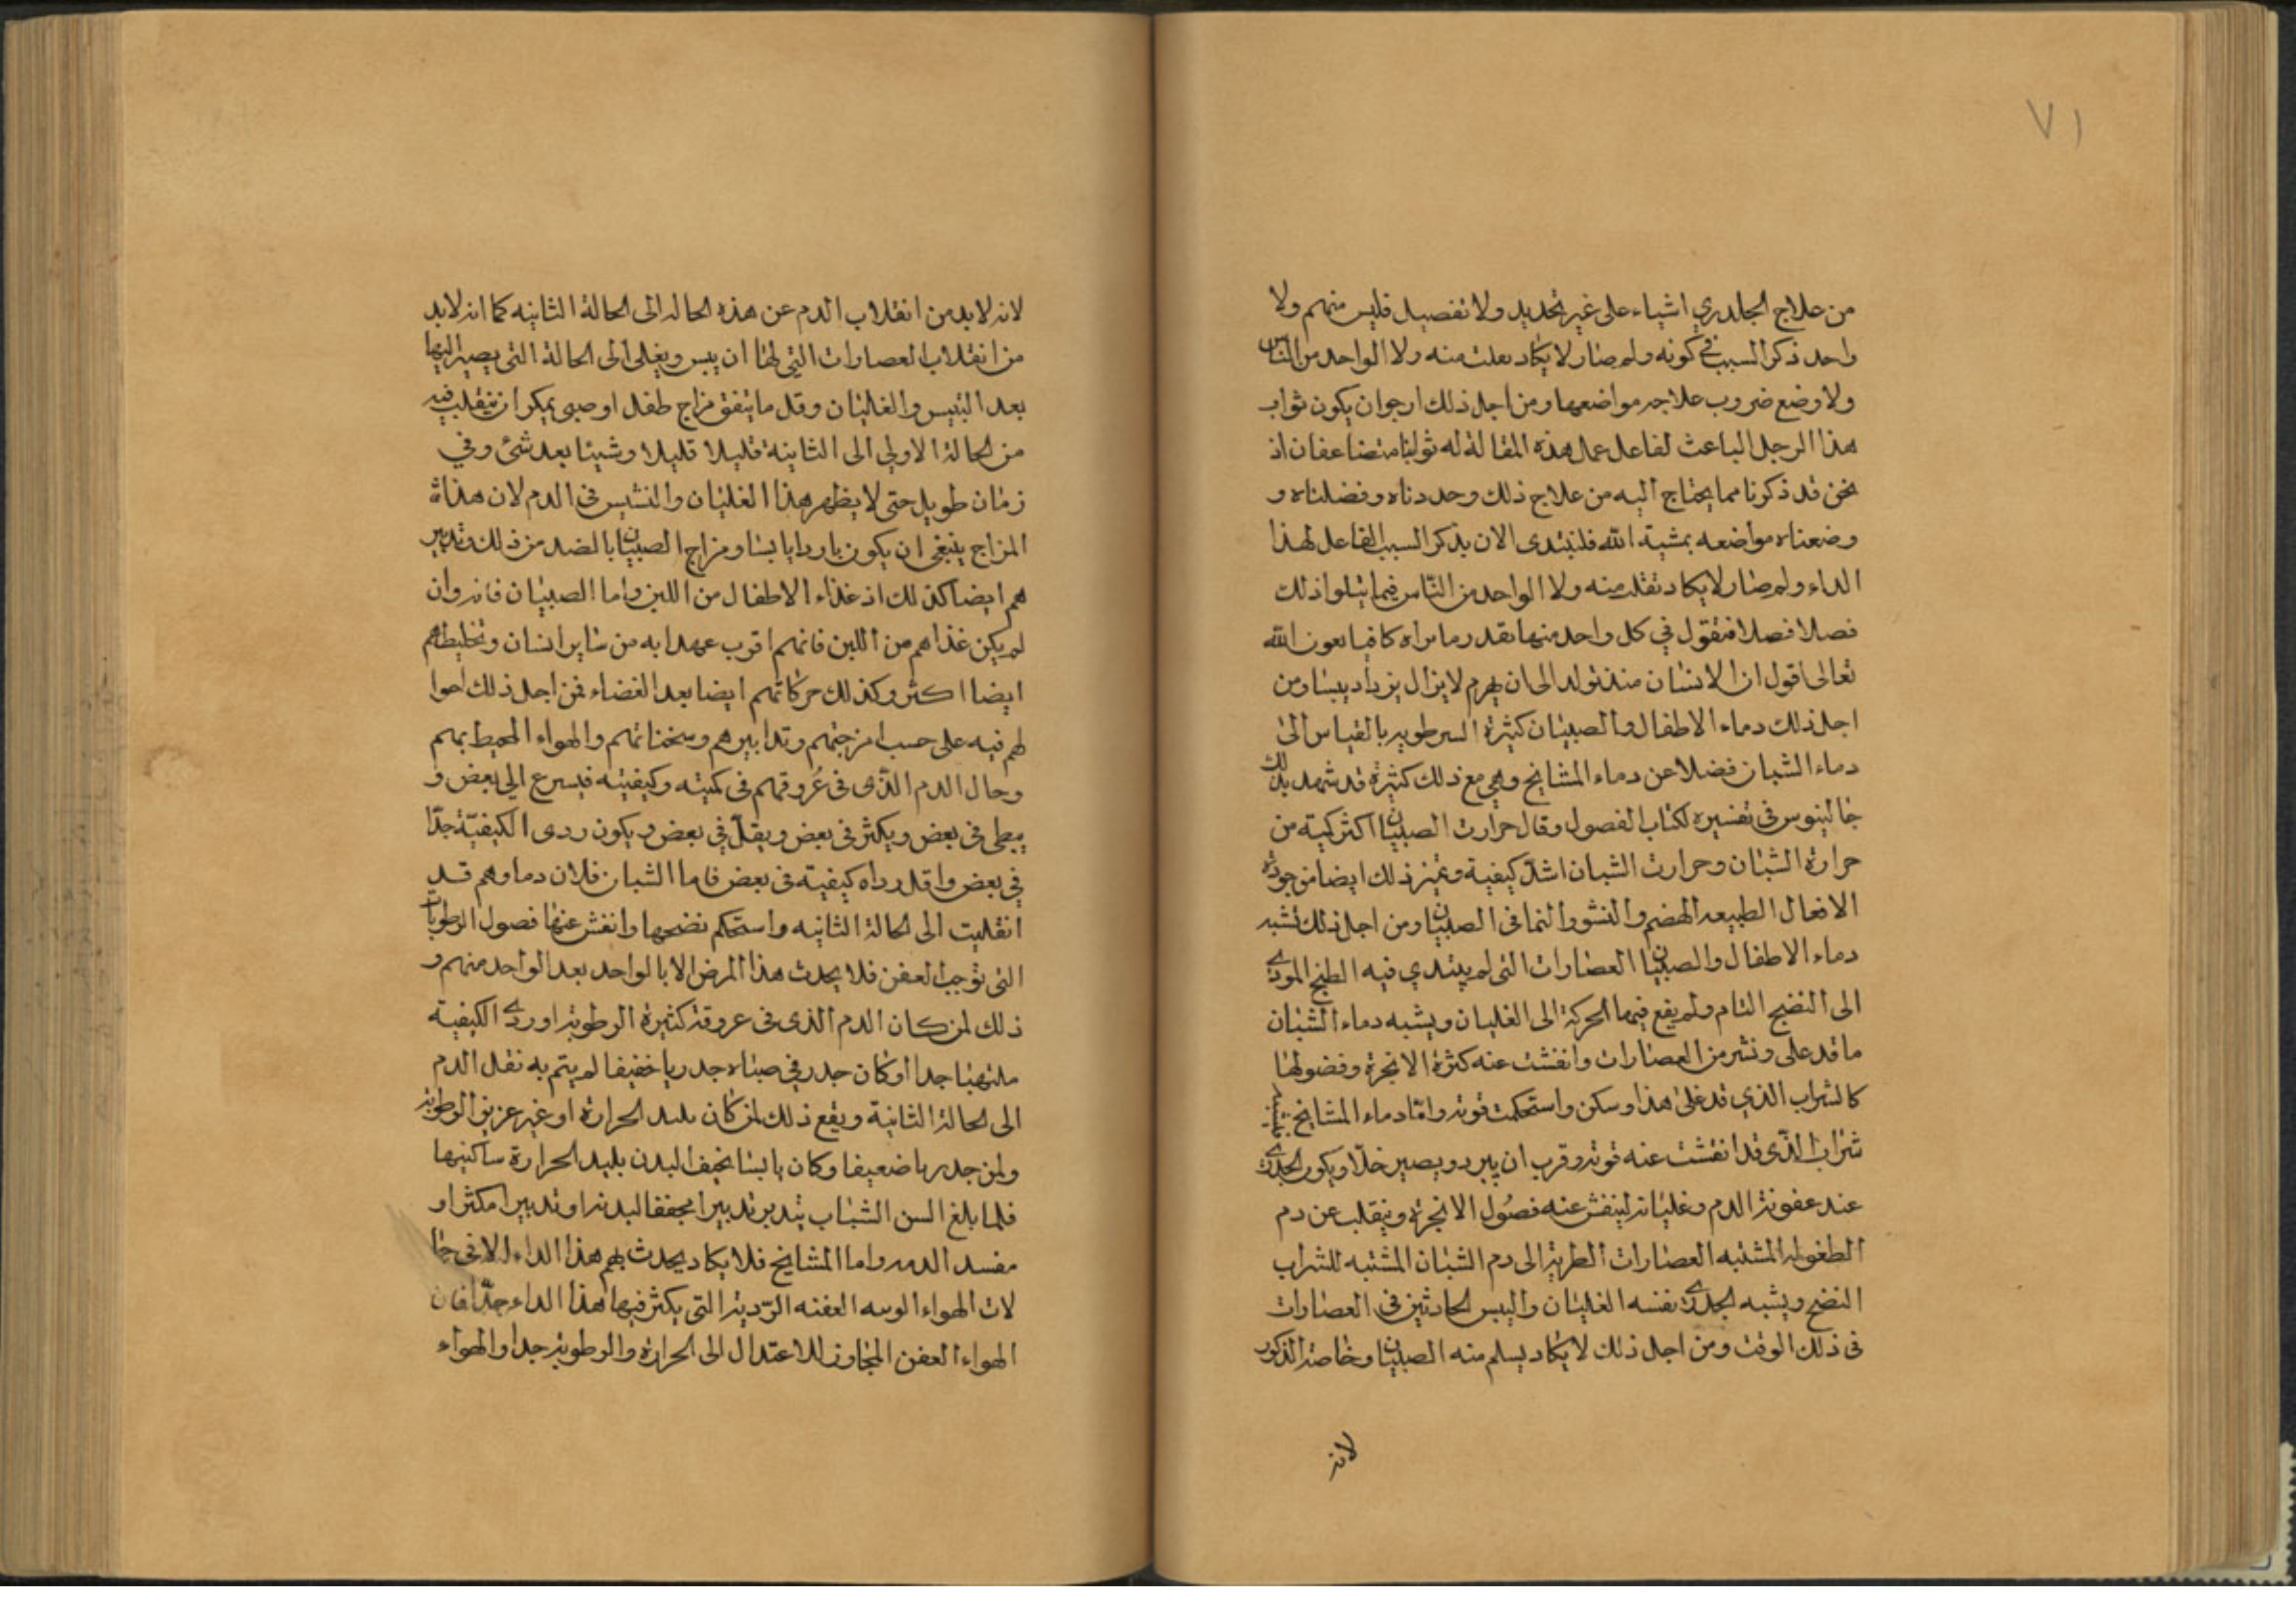 ٧١
من علاج الجلدري اشياء على غير تحديد ولا تفصيل فليس منهم ولا
واحد ذكر السبب في كونه ولم صار لا يكاد يعلت منه ولا الواحد من الناس
ولا وضع ضروب علاجه مواضعها ومن اجل ذلك ارجوان يكون ثواب
هذا الرجل الباعث لفاعل عمل هذه المقالة له ثوابا متضاعفا اذ
نحن قد ذكرنا مما يحتاج اليه من علاج ذلك وحددناه وفضلناه و
وضعناه مواضعه بمشية الله فلنبتدى الان بذكر السبب الفاعل لهذا
الداء ولم صار لا يكاد تفلت منه ولا الواحد من الناس فيما يتلوا ذلك
فصلا فصلا فنقول في كل واحد منها بقدر ما نراه كافيا بعون الله
تعالى اقول ان الانسان منذ تولد الى ان يهرم لا يزال يزداد يبسا ومن
اجل ذلك دماء الاطفال والصبيان كثيرة الرطوبه بالقياس الى
دماء الشبان فضلا عن دماء المشايخ وهي مع ذلك كثيرة قد شهد بذلك
جالينوس في تفسيره لكتاب الفصول وقال حرارت الصبيان اكثر كمية من
حرارة الشبان وحرارت الشبان اشد كيفية وتميز ذلك ايضا من جودة
الافعال الطبيعه الهضم والنشو والنما فى الصبيان ومن اجل ذلك تشبه
دماء الاطفال والصبيان العصارات التى لم يبتدي فيه الطبخ المودى
الى النضج التام ولم يقع فيها الحركة الى الغليان ويشبه دماء الشبان
ما قد على ونشر من العصارات وانفشت عنه كثرة الابخرة وفضولها
كالشراب الذي قد غلى هذا وسكن واستحكمت قوته واما دماء المشايخ
شراب الذى قد انفشت عنه قوته وقرب ان يبرد ويصير خلا ويكون الجدرى
عند عفونة الدم وغليانه لينفش عنه فصول الابخرة وينقلب عن دم
الطفوله المشتبه العصارات الطرية الى دم الشبان المشتبه للشراب
النضج ويشبه الجدرى نفسه الغليان واليبس الحادثين فى العصارات
فى ذلك الوقت ومن اجل ذلك لا يكاد يسلم منه الصبيان وخاصة الذكور
لانه
لانه لابد من انقلاب الدم عن هذه الحاله الى الحالة الثانيه كما انه لابد
من انقلاب العصارات التي لها ان ييبس ويغلى الى الحالة التى يصير اليها
بعد التيبس والغليان وقل ما يتفق مزاج طفل او صبى يمكن ان ينقلب فيه
من الحالة الاولي الى الثانية قليلا قليلا وشيئا بعد شئ وفي
زمان طويل حتى لا يظهر هذا الغليان والنشيش فى الدم لان هذاة
المزاج ينبغى ان يكون باردا يابسا ومزاج الصبيان بالضد من ذلك وتدبير
هم ايضا كذلك اذ غذاء الاطفال من اللبن واما الصبيان فانه وان
لم يكن غذاهم من اللبن فانهم اقرب عهدا به من ساير انسان وتخليطهم
ايضا اكثر وكذلك حركاتهم ايضا بعد الغضاء فمن اجل ذلك احوا
لهم فيه على حسب امزجتهم وتدابيرهم وسخناتهم والهواء المحيط بهم
وحال الدم الذى فى عروقهم فى كميته وكيفيته فيسرع الي بعض و
يبطى فى بعض ويكثر فى بعض ويقل في بعض ويكون ردى الكيفية جدا
في بعض واقل رداه كيفيته فى بعض فاما الشبان فلان دماوهم قد
انقلبت الى الحالة الثانيه واستحكم نضجها وانفش عنها فصول الرطوبات
التى توجب العفن فلا يحدث هذا المرض الا بالواحد بعد الواحد منهم و
ذلك لمن كان الدم الذى فى عروقه كثيرة الرطوبة او ردى الكيفية
ملتهبا جدا او كان جدر في صباه جدريا خفيفا لم يتم به نقل الدم
الى الحالة الثانية ويقع ذلك لمن كان بليد الحرارة او غير عزيز الرطوبة
ولمن جدريا ضعيفا وكان يابسا نحيف البدن بليد الحرارة ساكنها
فلما بلغ السن الشباب يتدبر تدبيرا مجففا لبدنه او تدبيرا مكثرا و
مفسد الدمه واما المشايخ فلا يكاد يحدث بهم هذا الداء الا فى حا
لات الهواء الوبيه العفنه الردية التى يكثر فيها هذا الداء جدا فان
الهواء العفن المجاوز للاعتدال الى الحرارة والرطوبة جدا والهواء